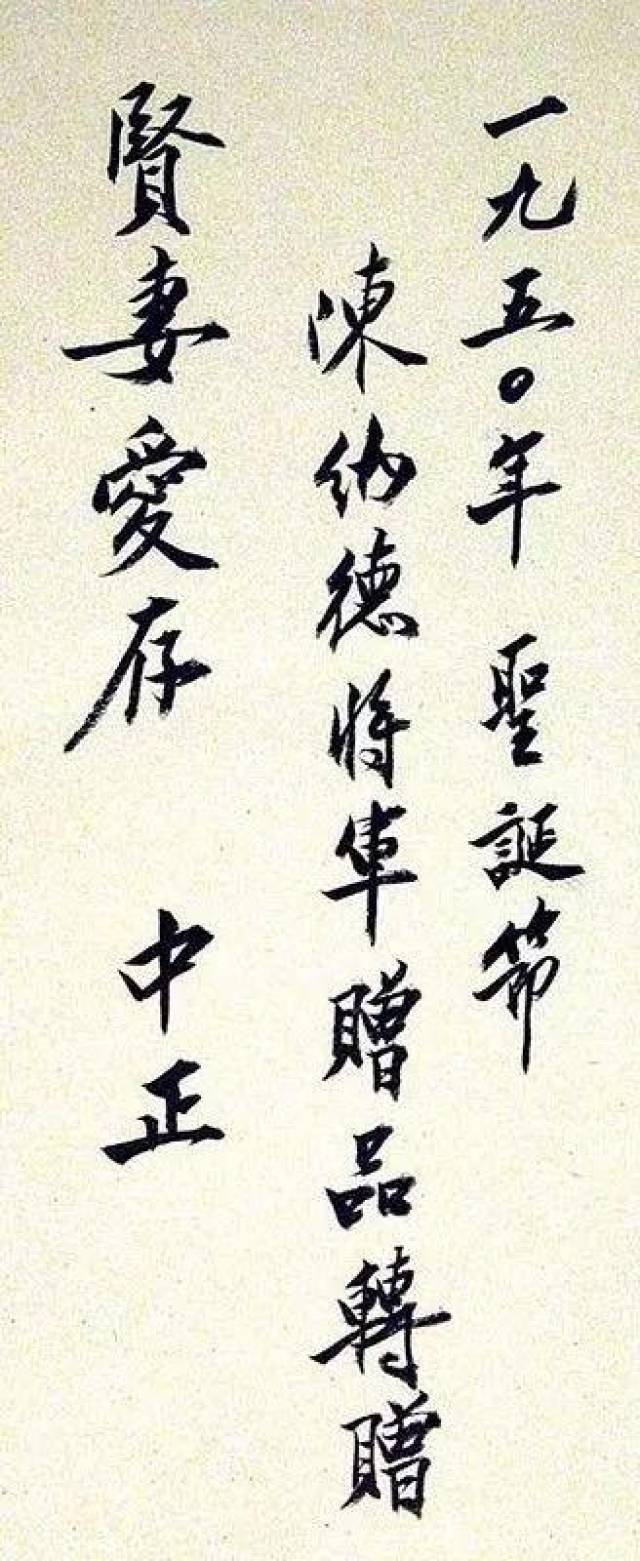 一九五〇年 聖誕節
陳納德將軍贈品轉贈
賢妻愛存 中正